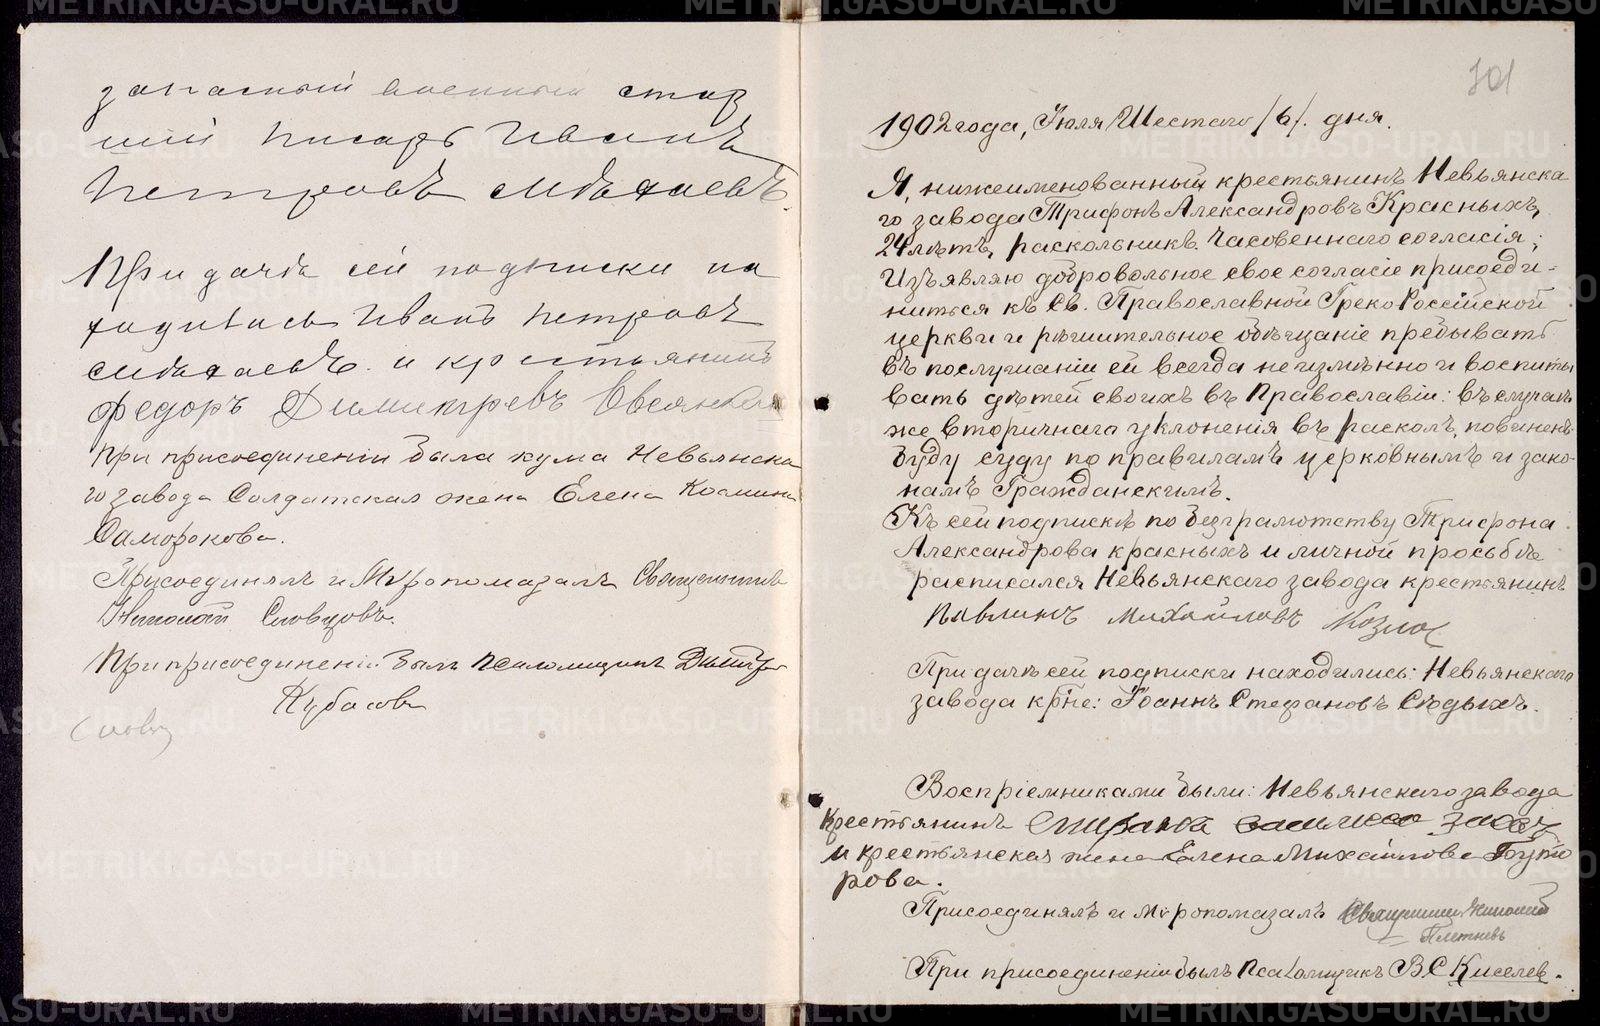 запасный военный стар
шій писарь Иванъ
Петровъ
При дачѣ сей подписки на
ходились Иванъ Петровъ
и крестьянинъ
Федоръ Димитревъ
При присоединеніи была кума Невьянска
го завода Солдатская жена Елена Космина
Саморокова.
Присоединялъ и Мѵропомазалъ Священникъ
Словцовъ.
При присоединеніи былъ Псаломщикъ Димитрі
Кубасовъ
101
1902 года, Іюля Шестаго /6/. дня.
Я, нижеименованный крестьянинъ Невьянска
го завода Трифонъ Александровъ Красныхъ,
24 лѣтъ, раскольникъ Часовеннаго согласія,
Изъявляю добровольное свое согласіе присоеди-
ниться къ Св. Православной Греко Россійской
церкви и рѣшительное обѣщаніе пребывать
въ послушаніи ей всегда неизмѣнно и воспиты
вать дѣтей своихъ въ Православіи: въ случаѣ
же вторичнаго уклоненія въ расколъ, повиненъ
буду суду по правиламъ церковнымъ и зако-
намъ Гражданскимъ.
Къ сей подпискѣ по безграмотству Трифона
Александрова красныхъ и личной просьбѣ
расписался Невьянскаго завода крестьянинъ
Павлинъ Михайловъ
При дачѣ сей подписки находились: Невьянскаго
завода крѣне: Іоаннъ Стефановъ Сѣдыхъ.
Воспріемниками были: Невьянскаго завода
Крестьянинъ
и крестьянская жена Елена Михайлова Буто
рова.
Присоединялъ и мѵропомазалъ Священникъ Николай
Плетневъ
При присоединеніи былъ Псаломщикъ В С Киселев.
METRIKI.GASO-URAL.RU